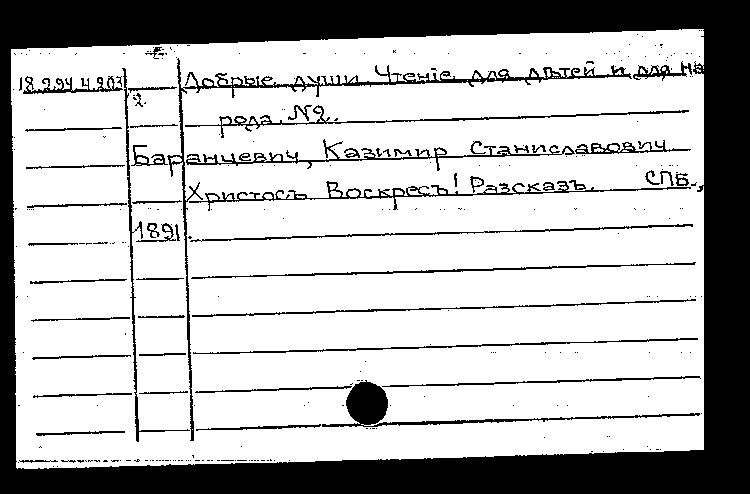 18.294.4.203 Добрые души. Чтенiе для дѣтей и для на
2. рода. №2.
Баранцевич, Казимир Станиславович.
Христосъ Воскресъ! Разсказъ. СПБ.,
1891.